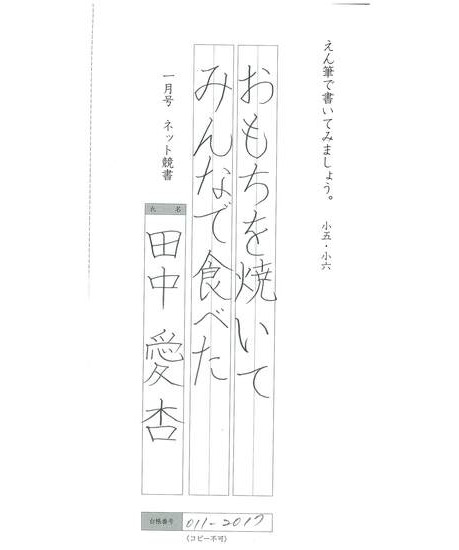 えん筆で書いてみましょう。 小五・小六
おもちを焼いて
みんなで食べた
一月号 ネット競書
氏 名
田中 愛杏
台帳番号 011-2017
(コピー不可)